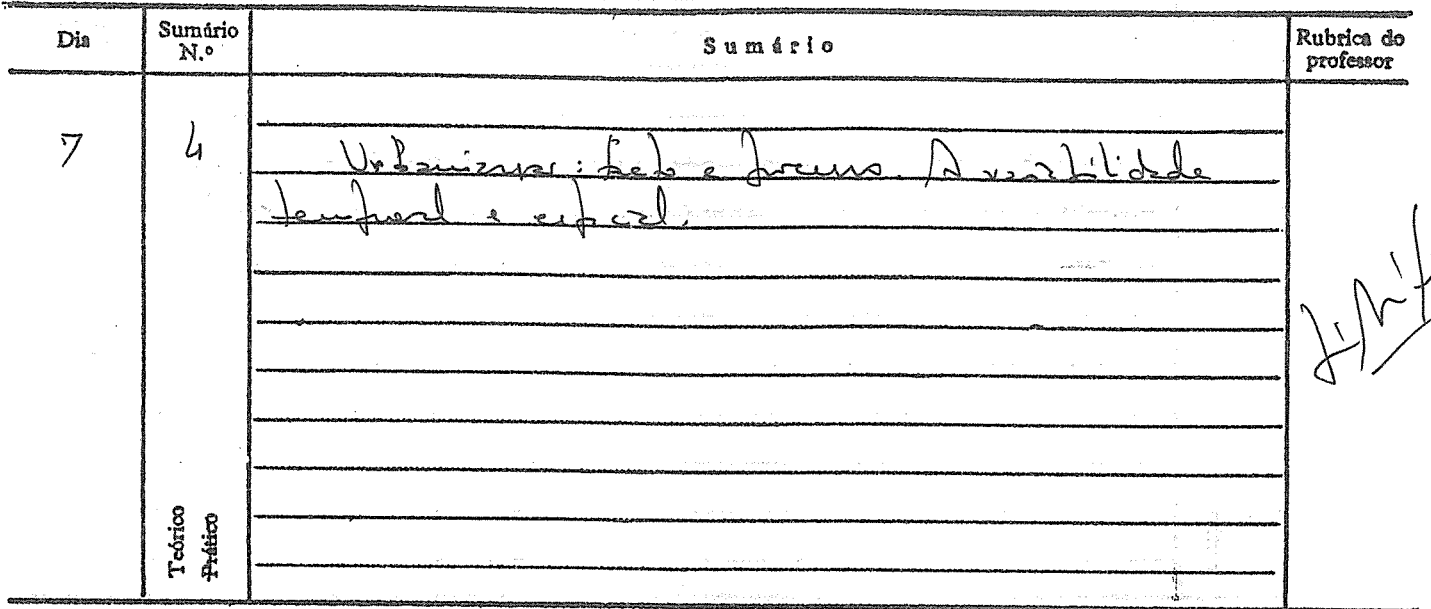 Dia
Sumário N.º
Sumário
Rubrica do professor
7
4
Urbanização: facto e processo. A variabilidade
temporal e espacial.
Teórico
Prático